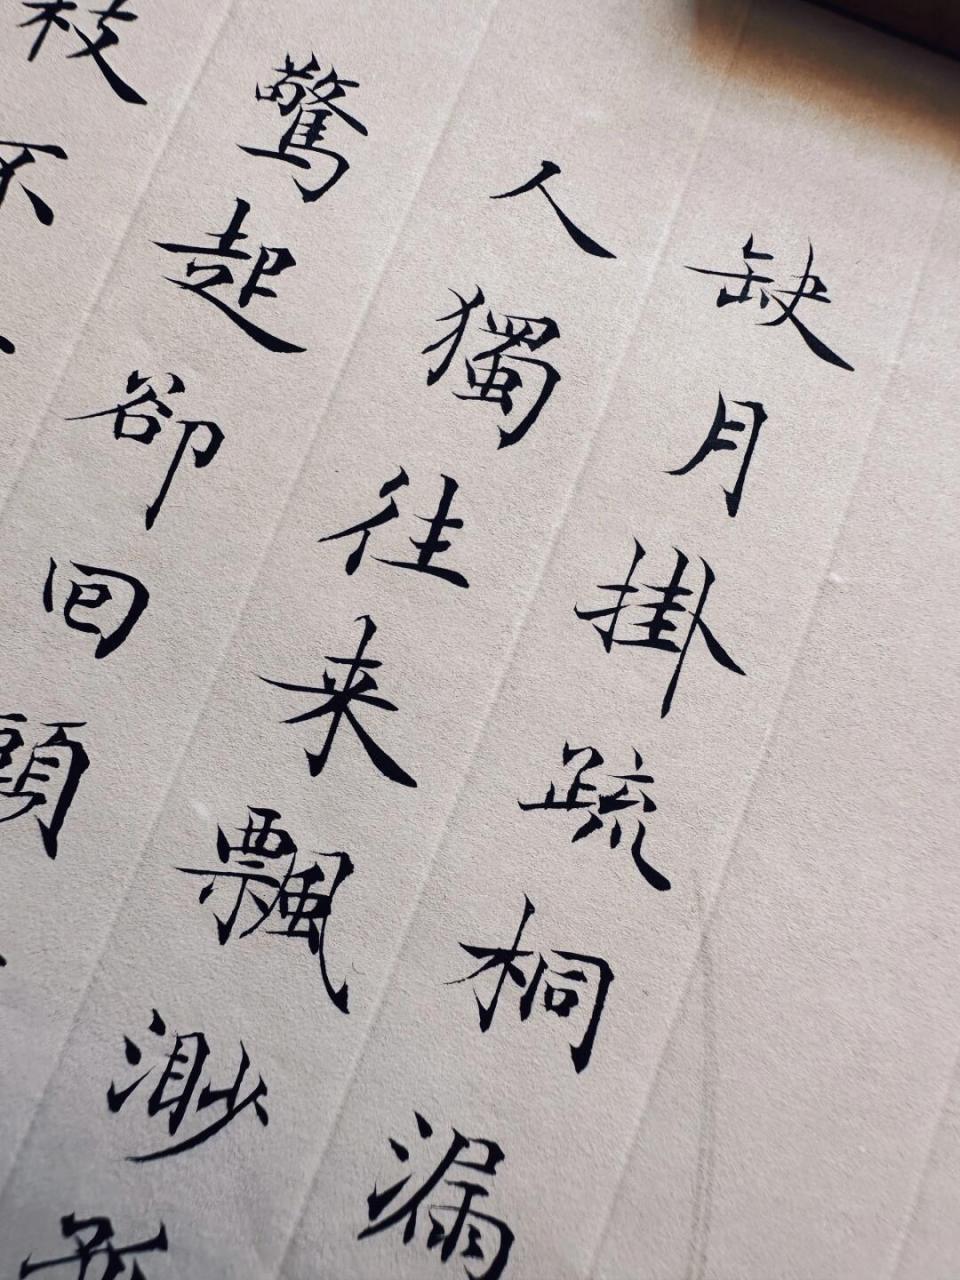 缺月掛疏桐漏
人獨往来飄渺
驚起卻囬頭
枝不